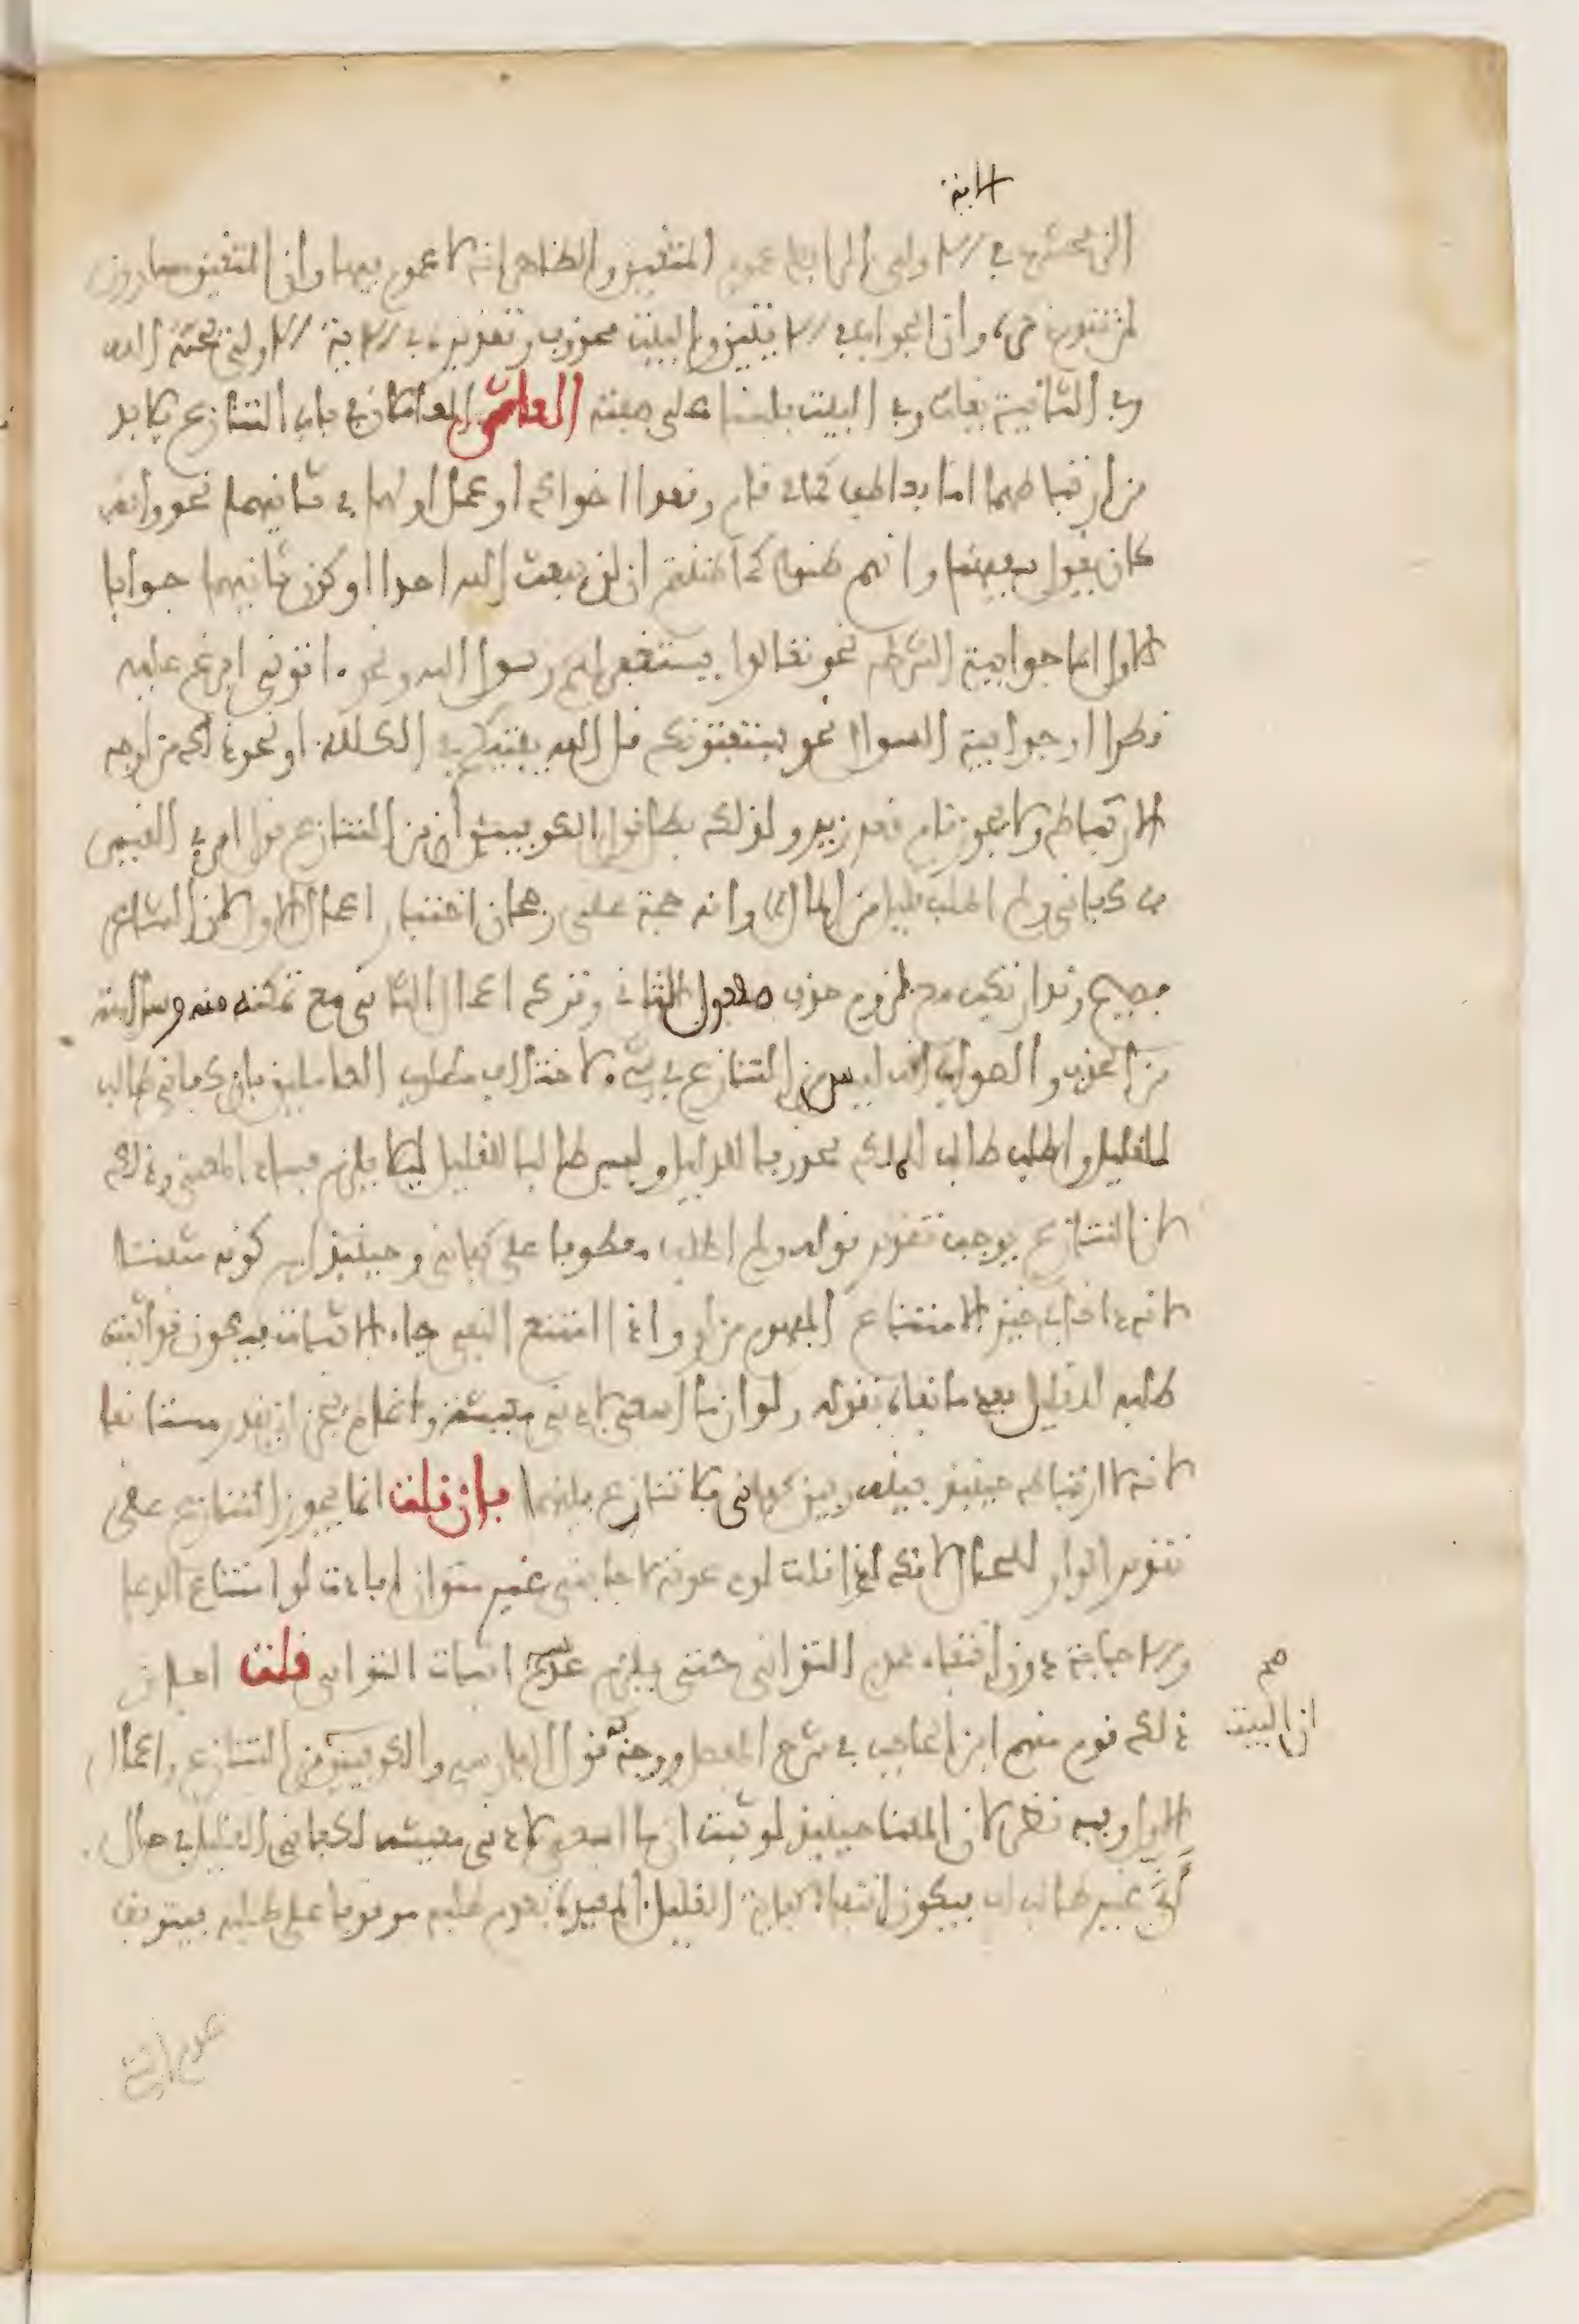 الاية
الزمخشري في الاولى المراد بها عموم المتقين والظاهر انه لا عموم فيها وان المتقين مساوون
لمن تقدم ذكره وان الجواب في الايتين والبيت محذوف وتقديره في الاية الاولى يحبه الله
وفي الثانية يغلب وفي البيت فلسنا على صفته العاشر المعدا كان في باب التنازع فلا بد
من ارتباطهما اما بعاطف كما في قام وقعدا اخواك او عمل اولهما في ثانيهما نحو وانه
كان يقول سفيهنا وانهم ظنوا كما ظننتم ان لن يبعث الله احدا او كون ثانيهما جوابا
للاول اما جوابية الشرط نحو تعالوا يستغفر لكم رسول الله ونحو اتوني افرغ عليه
قطرا او جوابية السوال نحو يستفتونك قل الله يفتيكم في الكلالة او نحو ذلك من اوجه
الارتباط ولا يجوز قام قعد زيد ولذلك بطل قول الكوفيين ان من التنازع قول امرئ القيس
كفاني ولم اطلب قليل من المال وانه حجة على رجحان اختيار اعمال الاول لان الشاعر
فصيح وقد ارتكبه مع لزوم حذف مفعول الثاني وترك اعمال الثاني مع تمكنه منه وسلامته
من الحذف والصواب انه ليس من التنازع في شيء لاختلاف مطلوب العاملين فان كفاني طالب
للقليل واطلب طالب للملك محذوفا للدليل وليس طالبا للقليل ليلا يلزم فساد المعنى وذلك
لان التنازع يوجب تقدير قوله ولم اطلب معطوفا على كفاني وحينيذ يلزم كونه مثبتا
لانه داخل في حيز الامتناع المفهوم من لو واذا امتنع النفي جاء الاثبات فيكون قد اثبت
طلبه للقليل بعد ما نفاه بقوله ولو ان ما اسعى لادنى معيشة وانما لم يجز ان يقدر مستانفا
لانه لا ارتباط حينيذ بينه وبين كفاني فلا تنازع بينهما فان قلت انما يجوز التنازع على
تقدير الواو للحال لانك اذا قلت لو دعوته لاجابني غير متوان افادت لو امتناع الدعا
والاجابة دون انتفاء عدم التواني حتى يلزم اثبات التواني قلت اجاز
ذلك قوم منهم ابن الحاجب في شرح المفصل ووجه به قول الفارسي والكوفيين من التنازع واعمال
الاول وفيه نظر لان المعنا حينيذ لو ثبت ان ما اسعى لادنى معيشة لكفاني القليل في حال
اني غير طالب له فيكون انتفاء كفاية القليل المقيدة بعدم طلبه موقوفا على طلبه فيتوقف
صح
ان البيت
عدم الشيء